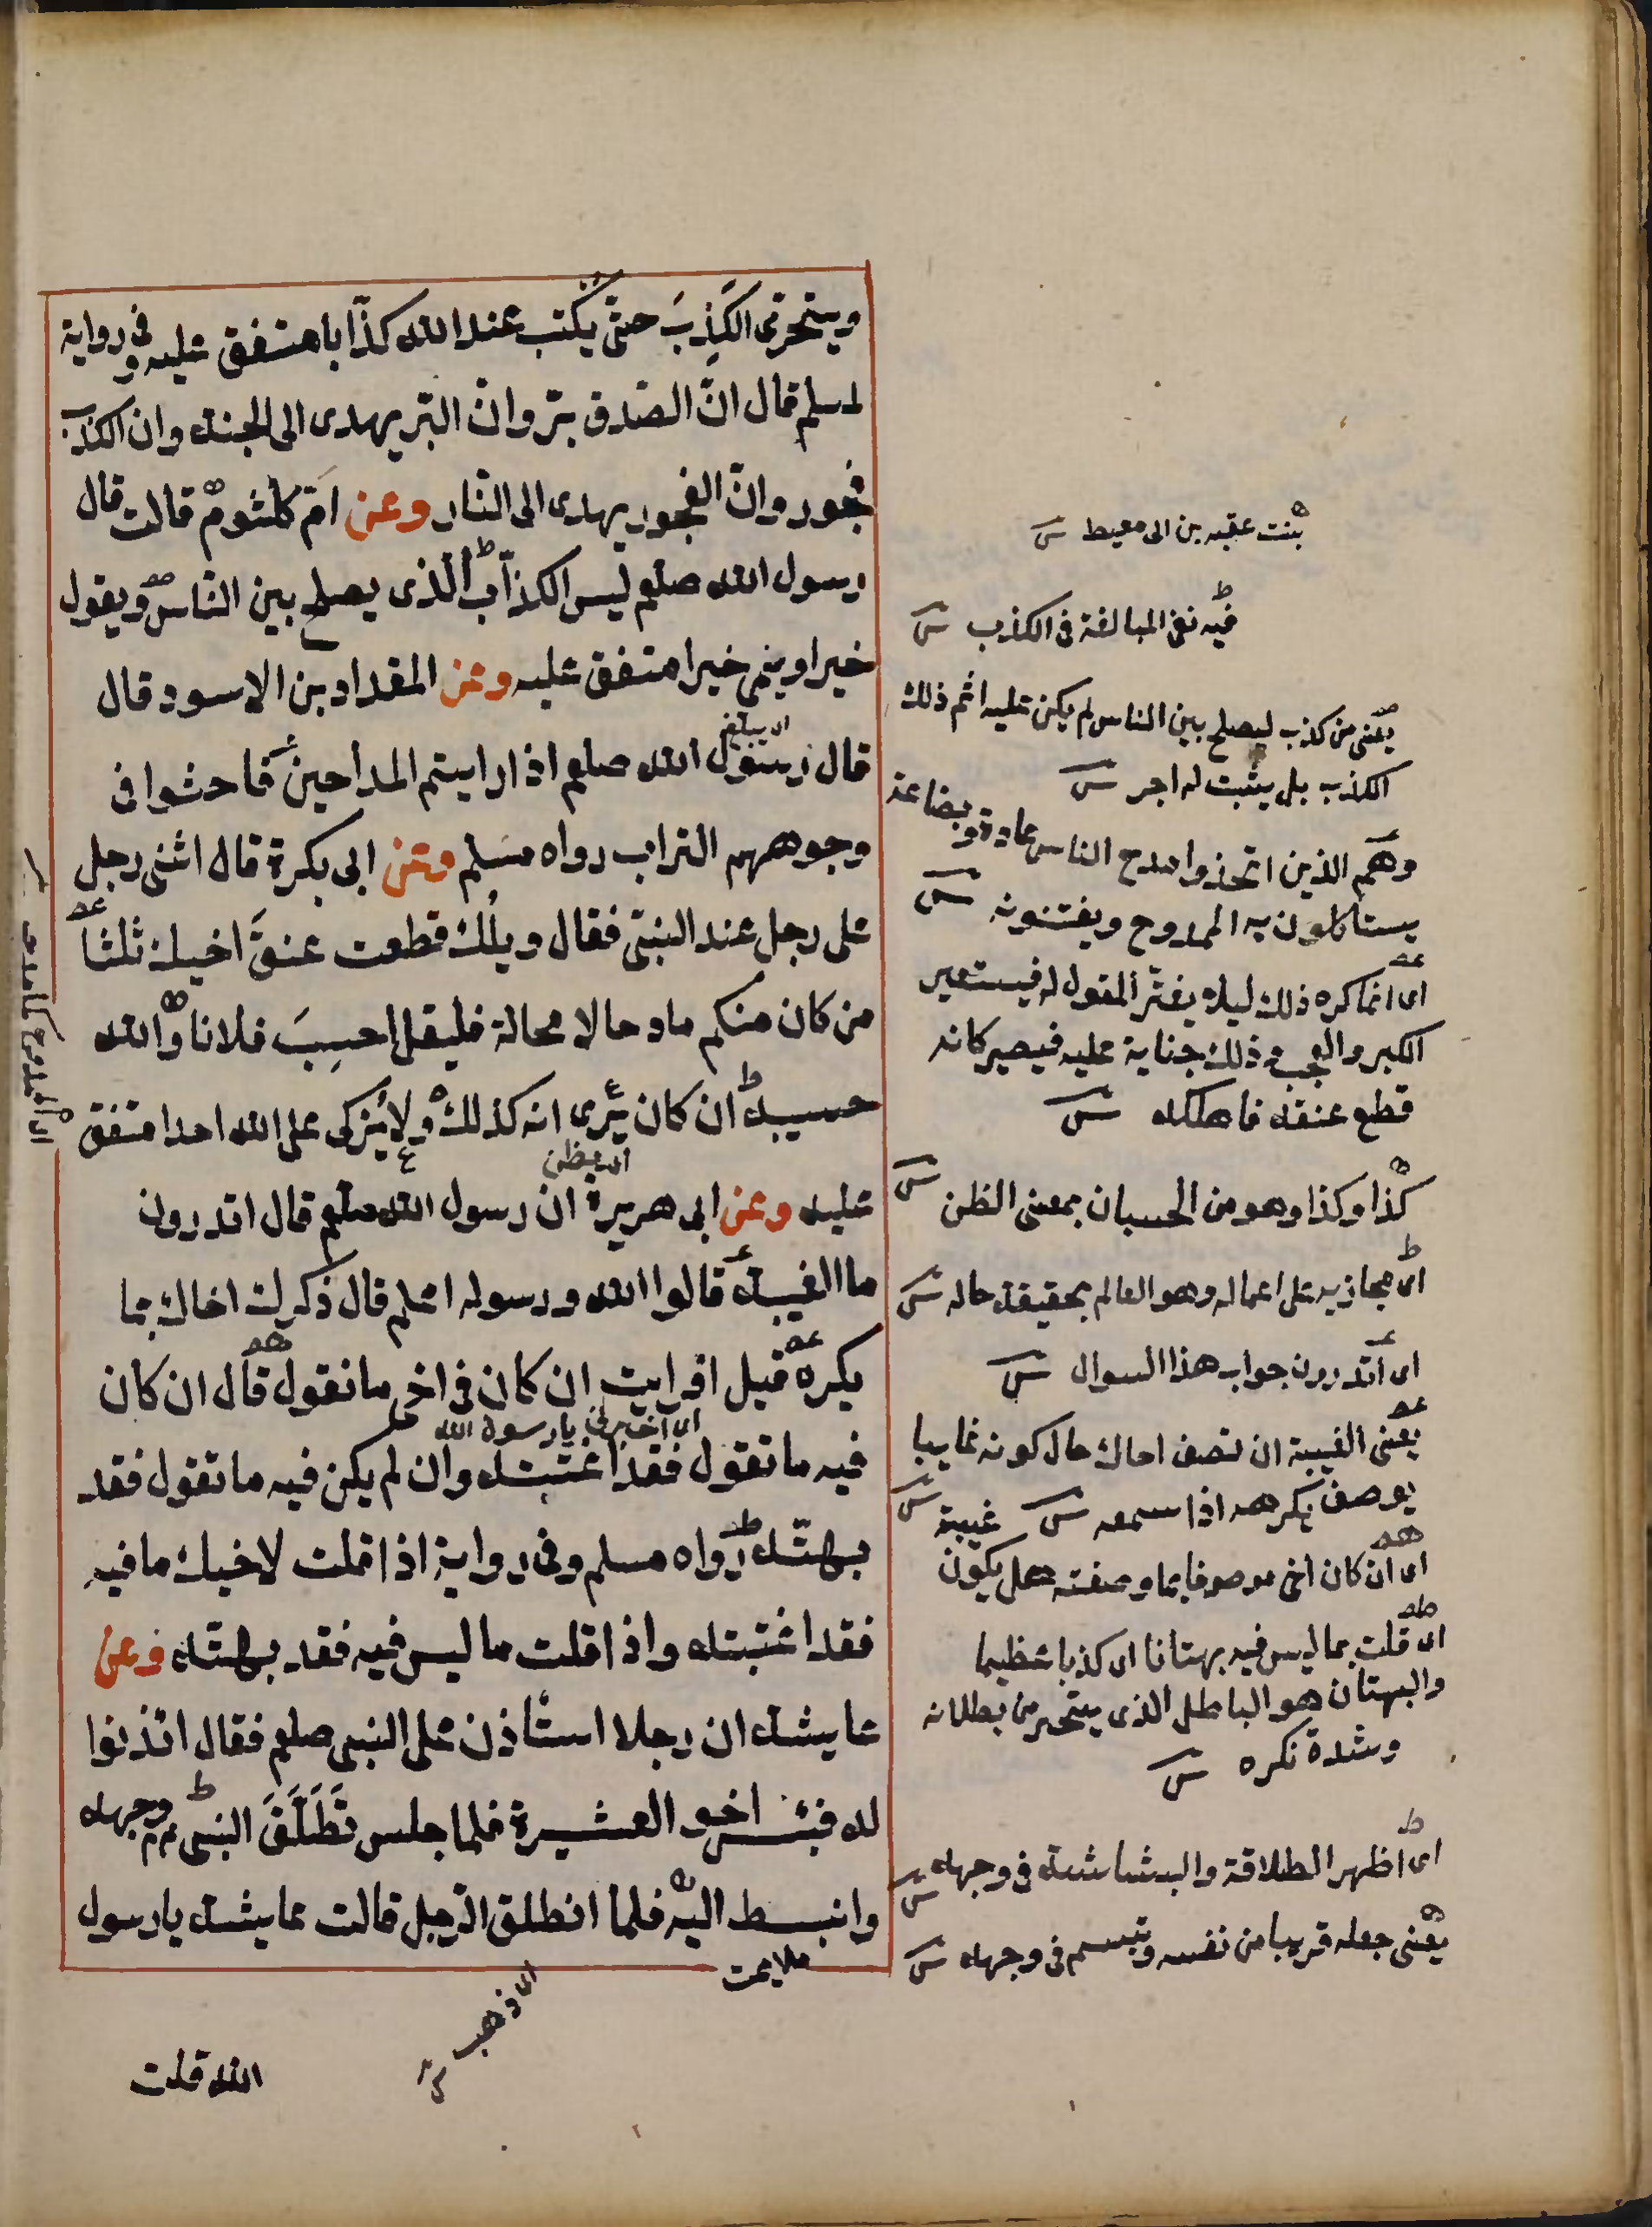 ويتحرّى الكَذِبَ حتّى يُكتب عند الله كذّابا متفق عليه وفى رواية
لمسلم قال انّ الصّدق برّ وانّ البرّ يهدى الى الجنة وان الكذب
فجور وانّ الفجور يهدى الى النّار وعن امّ كلثوم قالت قال
رسول الله صلعم ليس الكذّاب الّذى يصلح بين النّاس ويقول
خيرا وينمى خيرا متفق عليه وعن المقداد بن الاسود قال
اى يبلغ
قال رسول الله صلعم اذا رايتم المداحين فاحثوا فى
وجوههم التراب رواه مسلم وعن ابى بكرة قال اثنى رجل
على رجل عند النبىّ فقال ويلك قطعت عنقَ اخيك ثلثا
من كان منكم مادحا لا محالة فليقل احسِبَ فلانا والله
حسيبه ان كان يُرى انه كذلك ولا يُزكى على الله احدا متفق
اى يظن
عليه وعن ابى هريرة ان رسول الله صلعم قال اتدرون
ما الغيبة قالوا الله ورسوله اعلم قال ذكرك اخاك بما
يكره قيل افرايت ان كان فى اخى ما نقول قال ان كان
اى اخبرنى يا رسول الله
فيه ما تقول فقد اغتبته وان لم يكن فيه ما تقول فقد
بهتّه رواه مسلم وفى رواية اذا قلت لاخيك ما فيه
فقد اغتبته واذا قلت ما ليس فيه فقد بهتّه وعن
عايشه ان رجلا استأذن على النبى صلعم فقال ائذنوا
له فبئس اخو العشيرة فلما جلس تَطَلَّقَ النبى عم وجهه
وانبسط اليه فلما انطلق الرّجل قالت عايشه يا رسول
ملايمت
اى ذهب
الله قلت
بنت عقبه بن ابى معيط ش
فيه نفى المبالغة فى الكذب ش
يعنى من كذب ليصلح بين الناس لم يكن عليه اثم ذلك
الكذب بل يثبت له اجر ش
وهم الذين اتخذوا مدح الناس عادة وبضاعة
يستأكلون به الممدوح ويفتنونه ش
اى انما كره ذلك ليلا يغترّ المقول له فيستعير
الكبر والعجب وذلك جناية عليه فيصير كانه
قطع عنقه فاهلكه ش
كذا وكذا وهو من الحسبان بمعنى الظن ش
اى مجازيه على اعماله وهو العالم بحقيقة حاله ش
اى اتدرون جواب هذا السوال ش
يعنى الغيبة ان تصف اخاك حال كونه غايبا
بوصف يكرهه اذا سمعه ش
اى ان كان اخى موصوفا بما وصفته هل يكون غيبة ش
اى قلت بما ليس فيه بهتانا اى كذبا عظيما
والبهتان هو الباطل الذى يتحير من بطلانه
وشدة نكره ش
اى اظهر الطلاقة والبشاشة فى وجهه ش
يعنى جعله قريبا من نفسه وتبسم فى وجهه ش